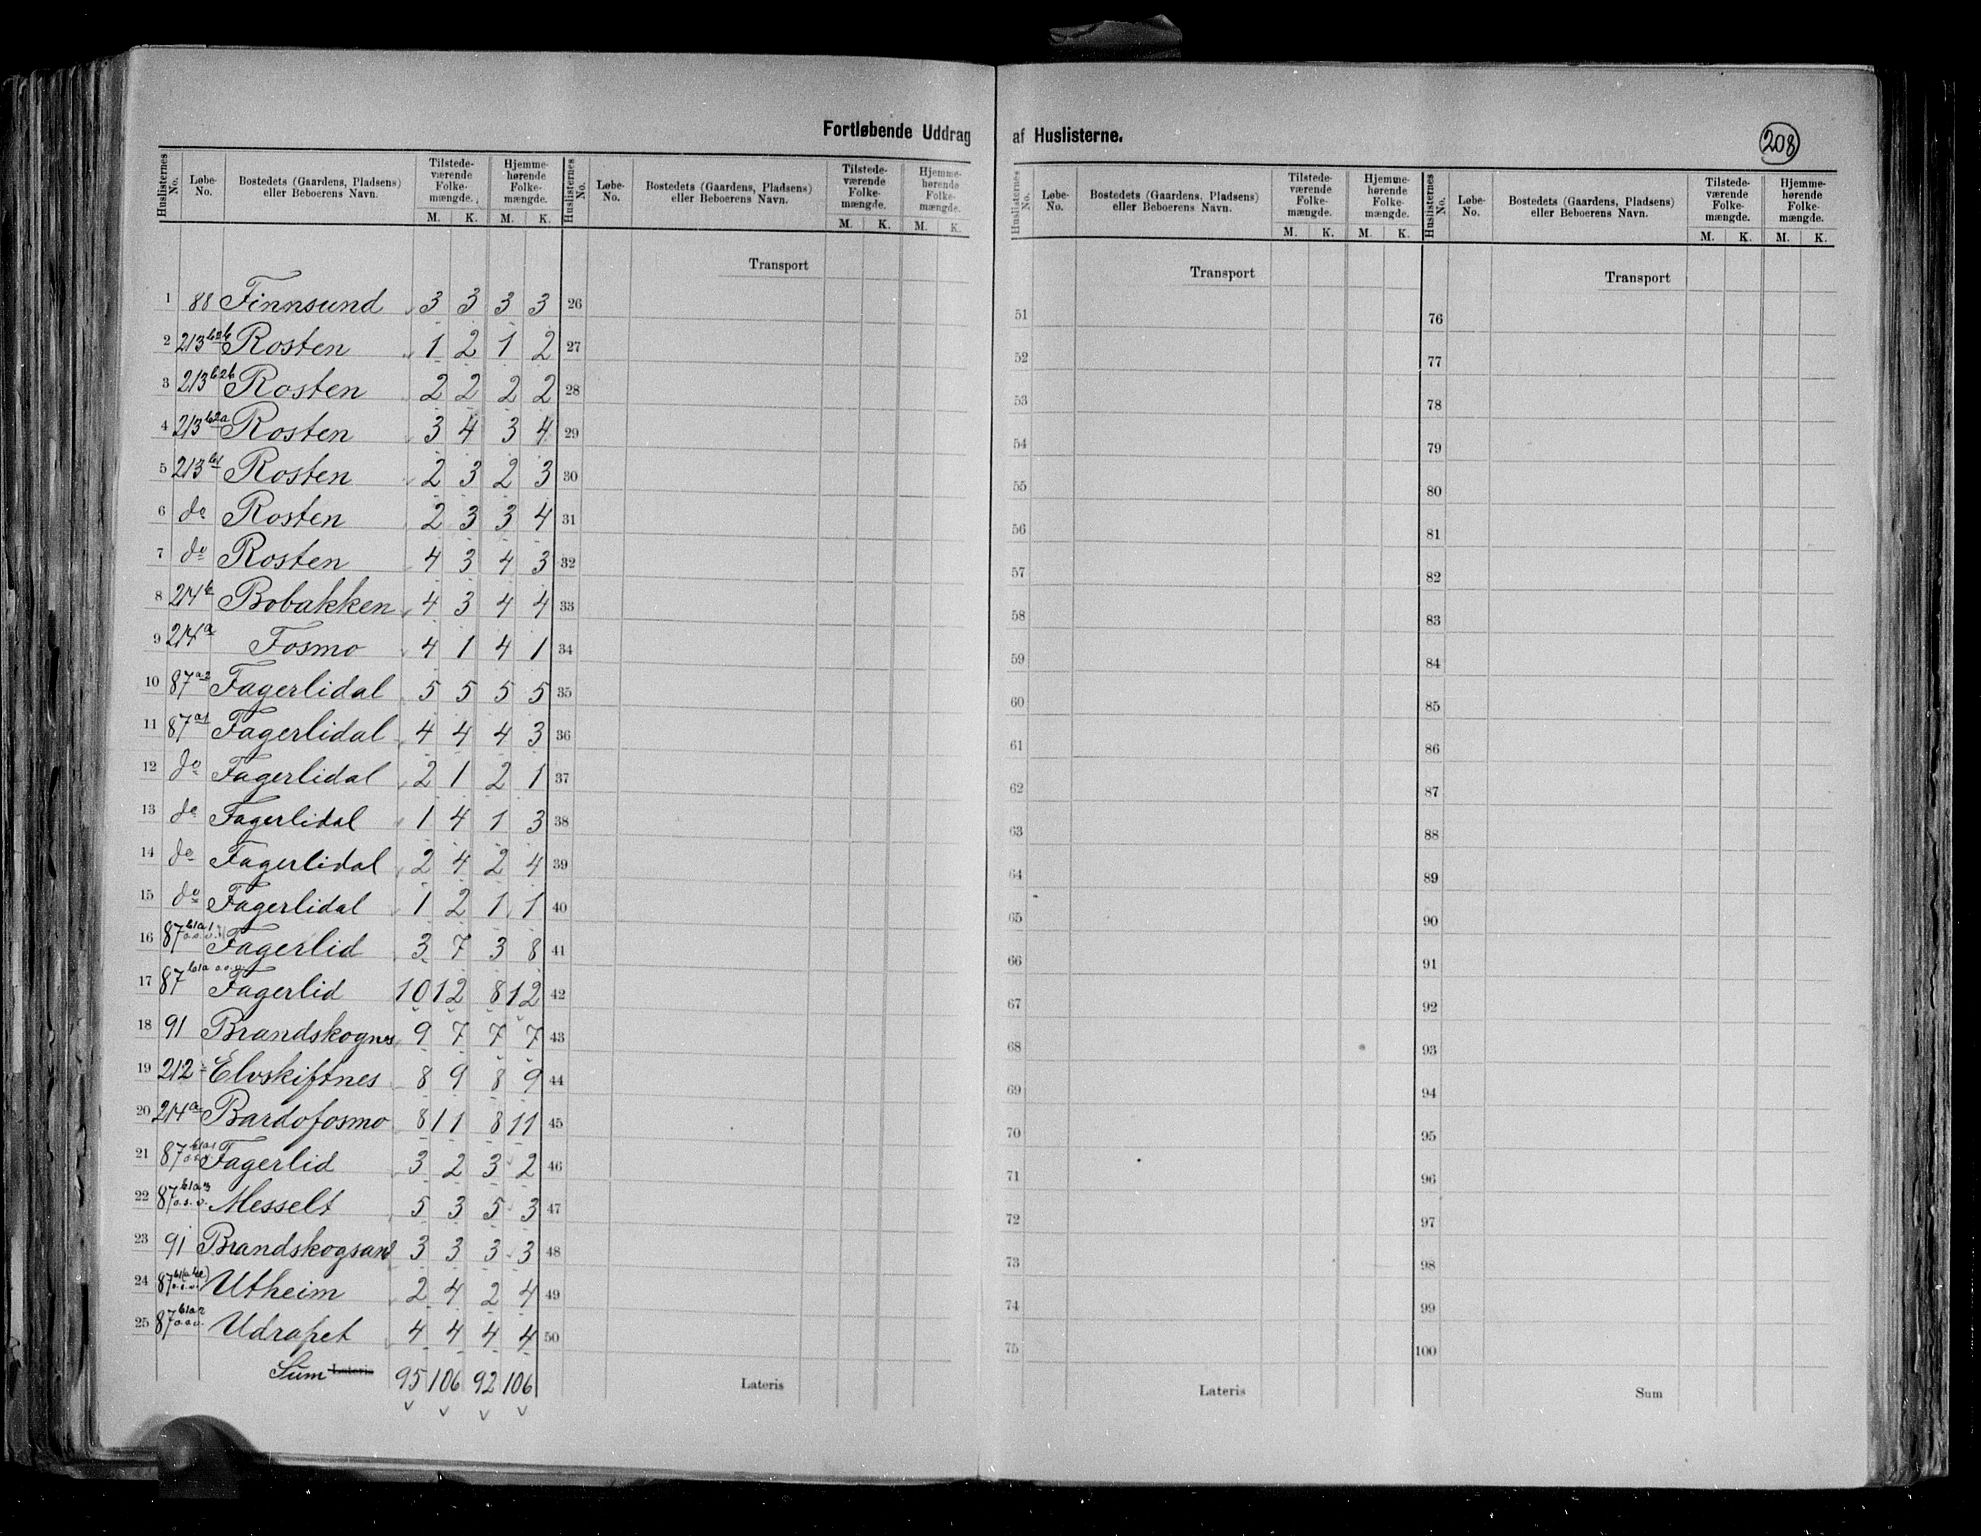 Fortløbende Uddrag af Huslisterne.
208
Huslisternes No. Løbe-No. Bostedets (Gaardens, Pladsens) eller Beboerens Navn. Tilstedeværende Folkemængde. M. K. Hjemmehørende Folkemængde. M. K.
1 88 Finnsund 3 3 3 3
2 213 b2b Rosten 1 2 1 2
3 213 b2b Rosten 2 2 2 2
4 213 b2a Rosten 3 4 3 4
5 213 b1 Rosten 2 3 2 3
6 do Rosten 2 3 3 4
7 do Rosten 4 3 4 3
8 214 b Bobakken 4 3 4 4
9 214 a Fosmo 4 1 4 1
10 87 a2 Fagerlidal 5 5 5 5
11 87 a1 Fagerlidal 4 4 4 3
12 do Fagerlidal 2 1 2 1
13 do Fagerlidal 1 4 1 3
14 do Fagerlidal 2 4 2 4
15 do Fagerlidal 1 2 1 1
16 87 b1a1 o.s.v. Fagerlid 3 7 3 8
17 87 b1a o.s.v. Fagerlid 10 12 8 12
18 91 Brandskognes 9 7 7 7
19 212 Elvskiftnes 8 9 8 9
20 214 a Bardofosmo 8 11 8 11
21 87 b1a1 Fagerlid 3 2 3 2
22 87 b1a3 o.s.v. Messelt 5 3 5 3
23 91 Brandskogsand 3 3 3 3
24 87 o.s.v. Utheim 2 4 2 4
25 87 b1a2 o.s.v. Udrapet 4 4 4 4
Sum Lateris 95 106 92 106
Huslisternes No. Løbe-No. Bostedets (Gaardens, Pladsens) eller Beboerens Navn. Tilstedeværende Folkemængde. M. K. Hjemmehørende Folkemængde. M. K.
Transport
26
27
28
29
30
31
32
33
34
35
36
37
38
39
40
41
42
43
44
45
46
47
48
49
50
Lateris
Huslisternes No. Løbe-No. Bostedets (Gaardens, Pladsens) eller Beboerens Navn. Tilstedeværende Folkemængde. M. K. Hjemmehørende Folkemængde. M. K.
Transport
51
52
53
54
55
56
57
58
59
60
61
62
63
64
65
66
67
68
69
70
71
72
73
74
75
Lateris
Huslisternes No. Løbe-No. Bostedets (Gaardens, Pladsens) eller Beboerens Navn. Tilstedeværende Folkemængde. M. K. Hjemmehørende Folkemængde. M. K.
Transport
76
77
78
79
80
81
82
83
84
85
86
87
88
89
90
91
92
93
94
95
96
97
98
99
100
Sum